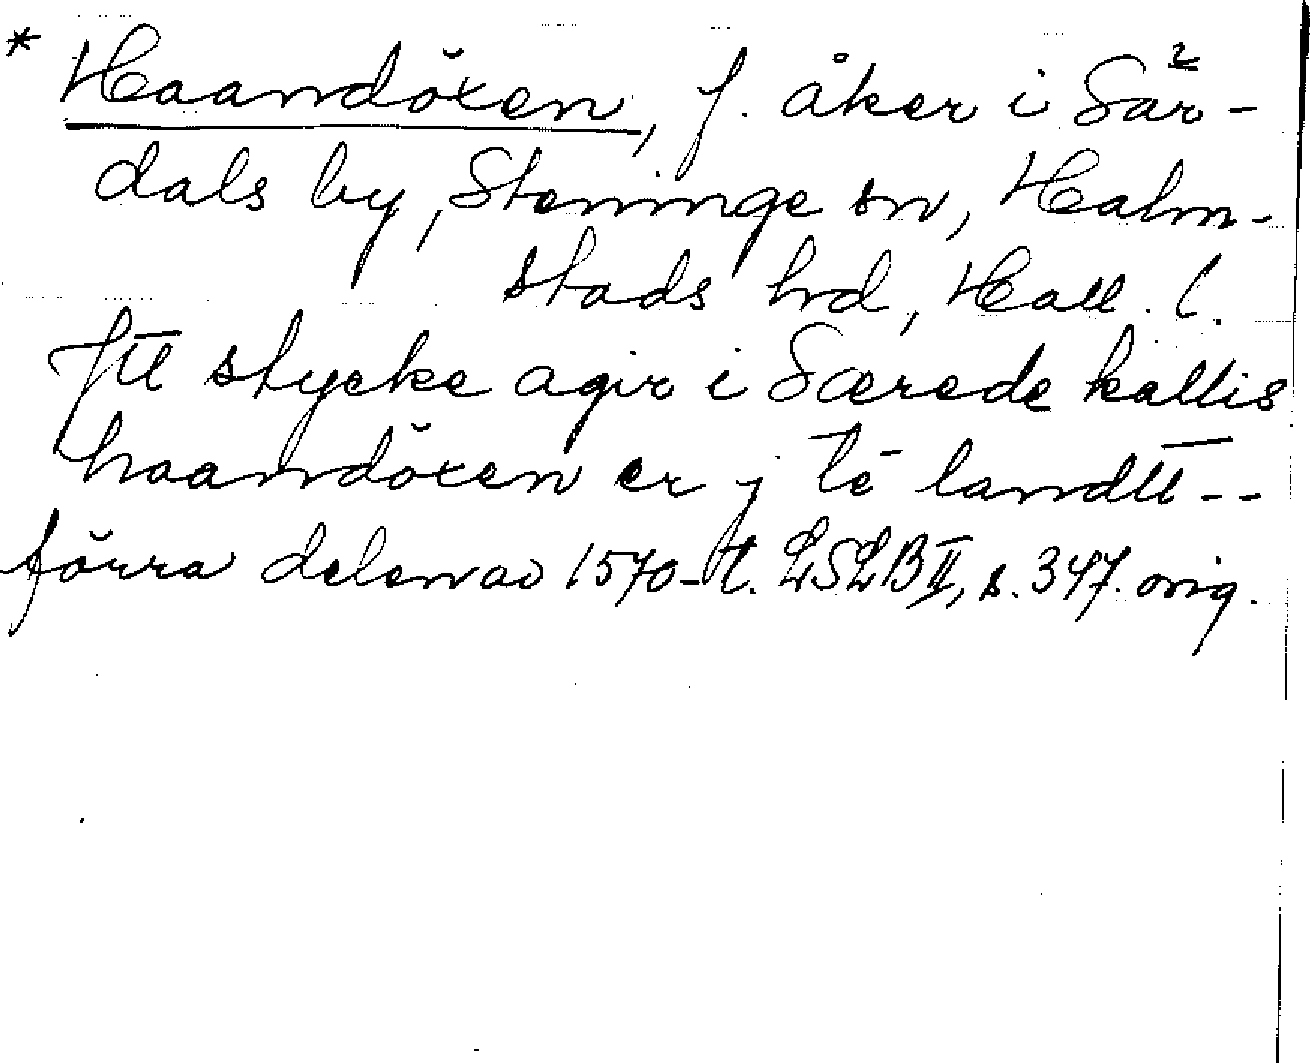 * Haandöxen, f. åker i Sär-
dals by, Steninge sn, Halm-
stads hrd, Hall. l.
Jtt stycke agir i Særede kallis
haandöxen er j tē landtt--
förra delen av 1570-t. LSLB II, s. 347. orig.